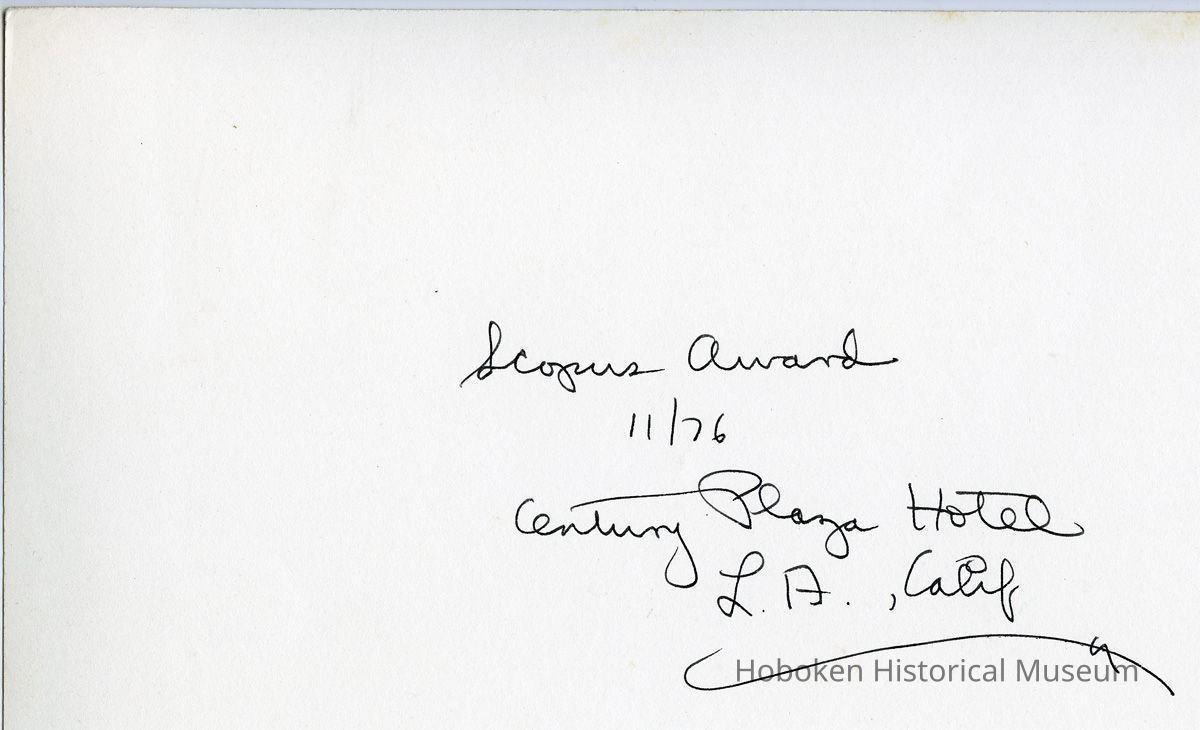 Scopus Award
11/76
Century Plaza Hotel
L.A., Calif
Hoboken Historical Museum